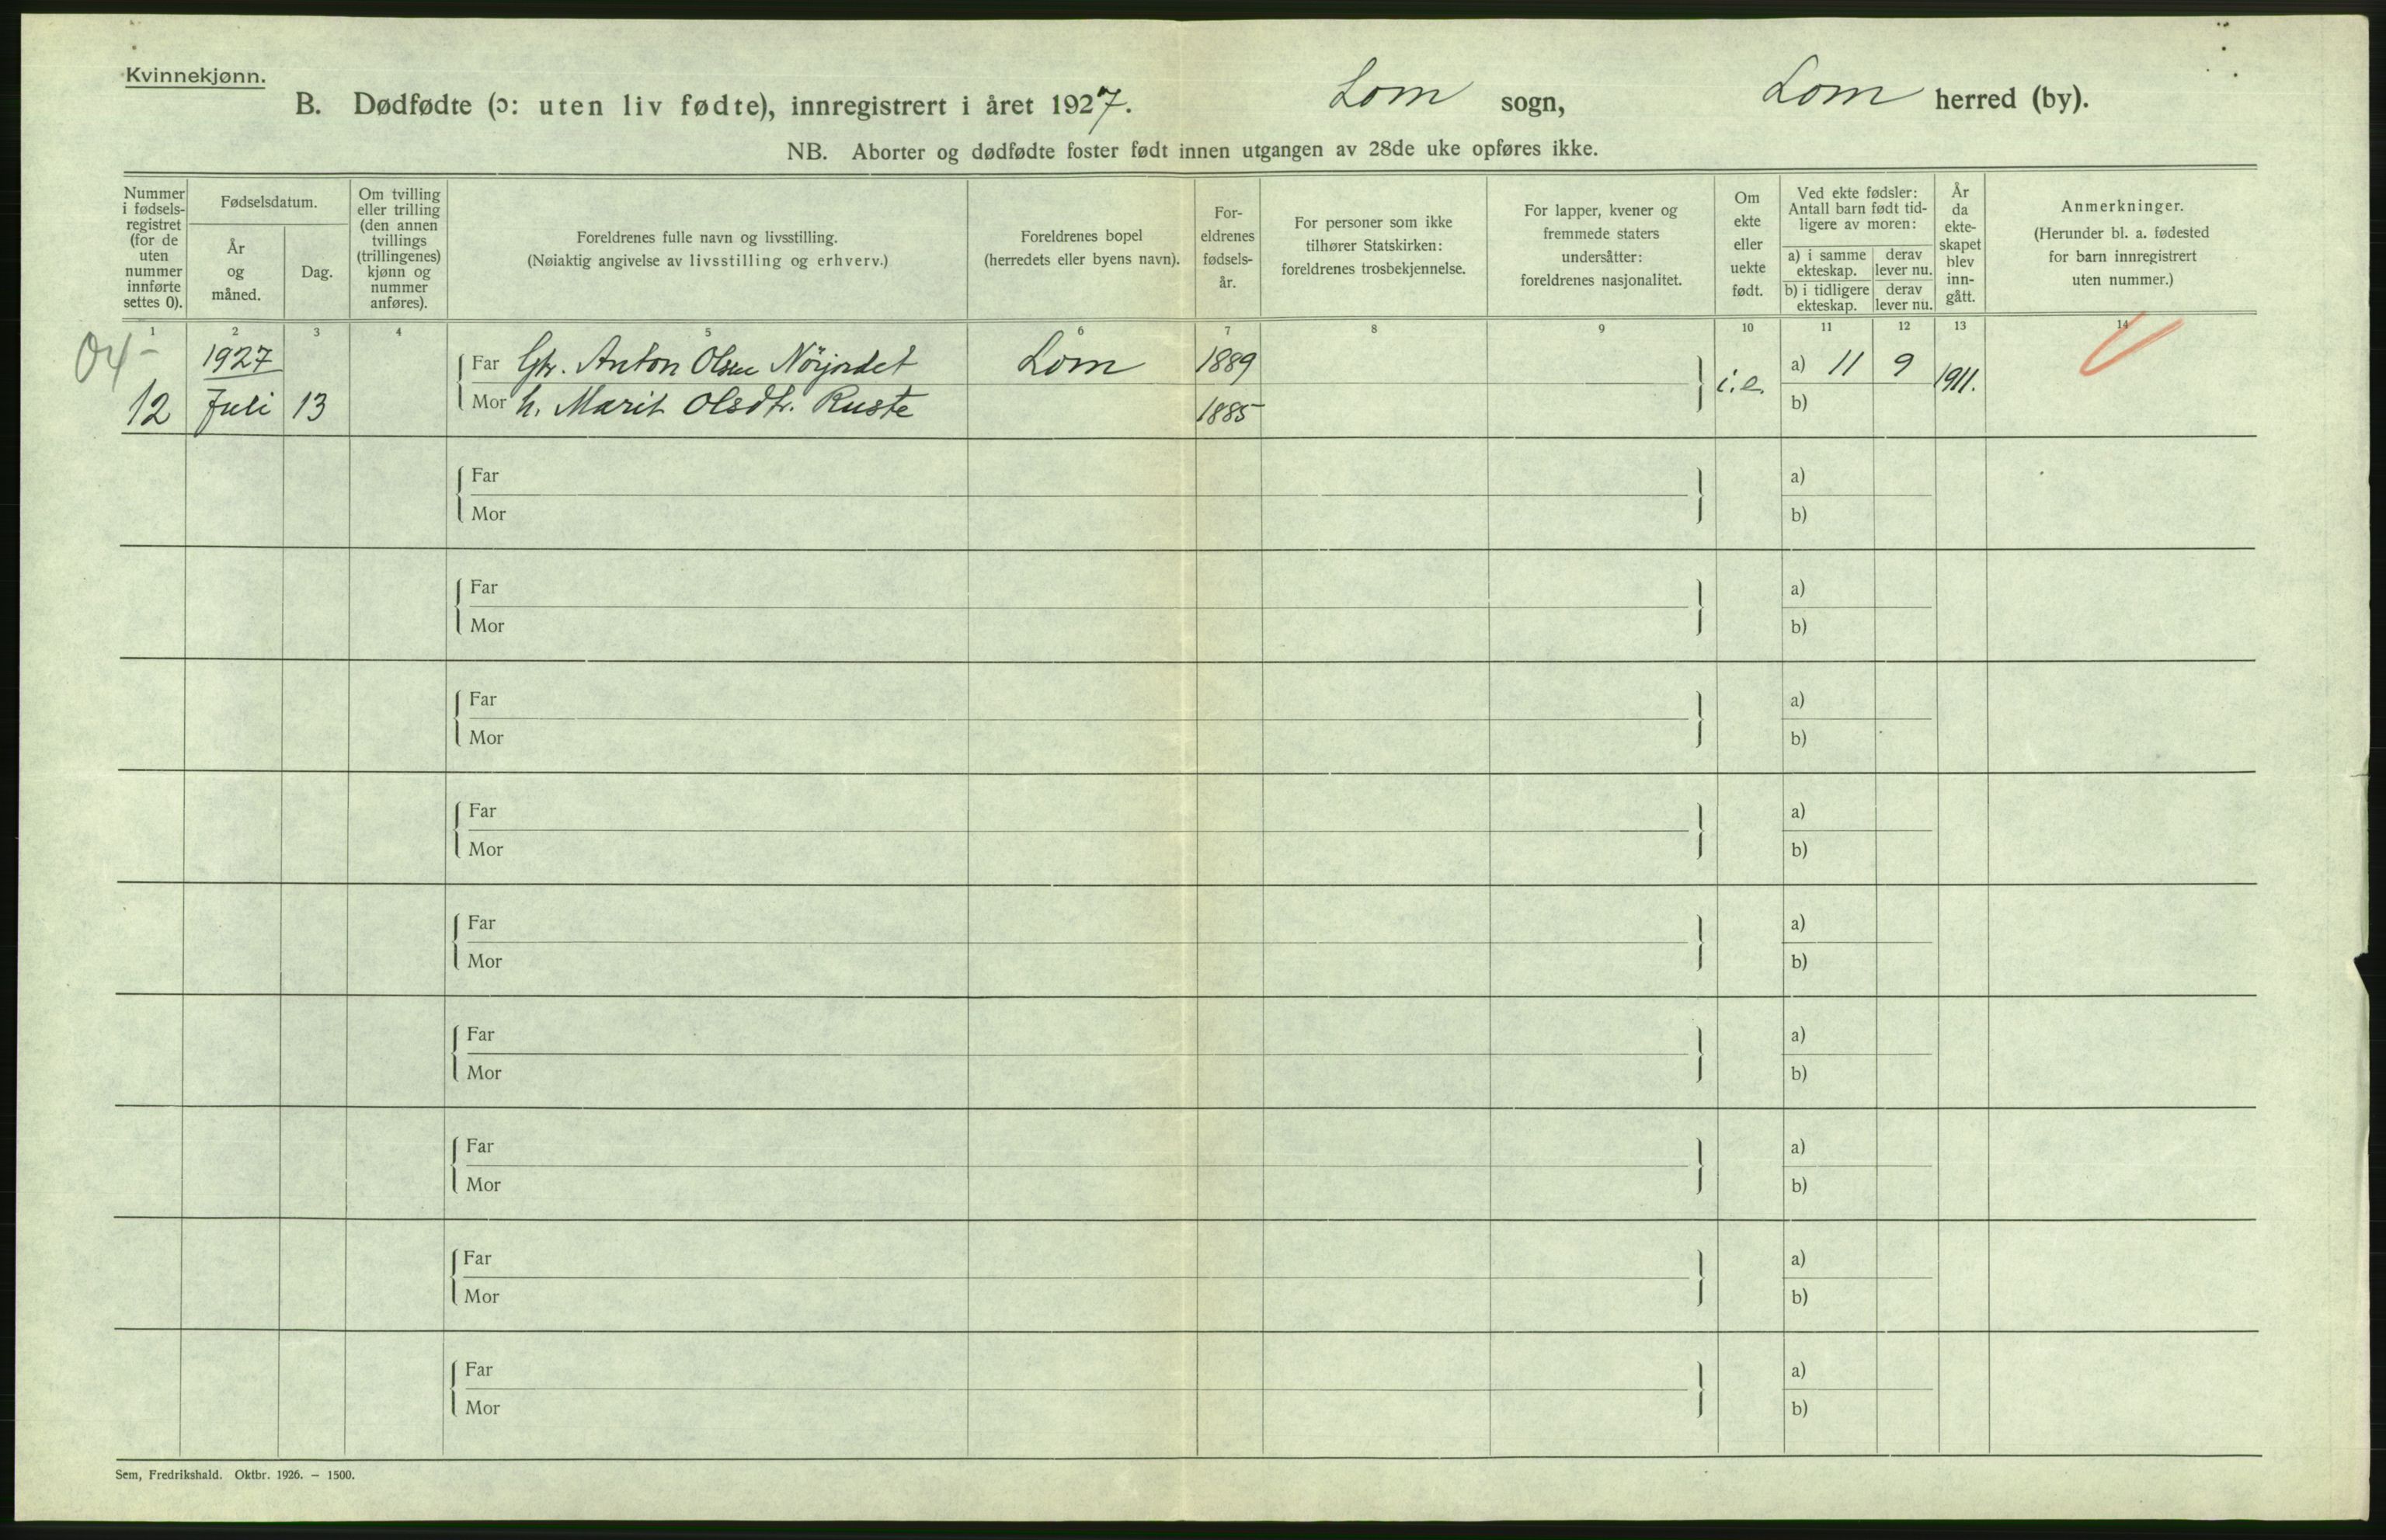 Kvinnekjønn.
B. Dødfødte (ɔ: uten liv fødte), innregistrert i året 1927. Lom sogn, Lom herred (by).
NB. Aborter og dødfødte foster født innen utgangen av 28de uke opføres ikke.
Nummer i fødsels-registret (for de uten nummer innførte settes 0).
Fødselsdatum.
År og måned.
Dag.
Om tvilling eller trilling (den annen tvillings (trillingenes) kjønn og nummer anføres).
Foreldrenes fulle navn og livsstilling.
(Nøiaktig angivelse av livsstilling og erhverv.)
Foreldrenes bopel
(herredets eller byens navn).
For-eldrenes fødsels-år.
For personer som ikke tilhører Statskirken: foreldrenes trosbekjennelse.
For lapper, kvener og fremmede staters undersåtter: foreldrenes nasjonalitet.
Om ekte eller uekte født.
Ved ekte fødsler: Antall barn født tid-ligere av moren:
a) i samme ekteskap. derav lever nu.
b) i tidligere ekteskap. derav lever nu.
År da ekte-skapet blev inn-gått.
Anmerkninger.
(Herunder bl. a. fødested for barn innregistrert uten nummer.)
1 2 3 4 5 6 7 8 9 10 11 12 13 14
04-
1927 Far Gbr. Anton Olsen Nörjordet Lom 1889 i.e. a) 11 9 1911.
12 Juli 13 Mor h. Marit Olsdtr. Ruste 1885 b)
Far a)
Mor b)
Far a)
Mor b)
Far a)
Mor b)
Far a)
Mor b)
Far a)
Mor b)
Far a)
Mor b)
Far a)
Mor b)
Far a)
Mor b)
Far a)
Mor b)
Sem, Fredrikshald. Oktbr. 1926. – 1500.